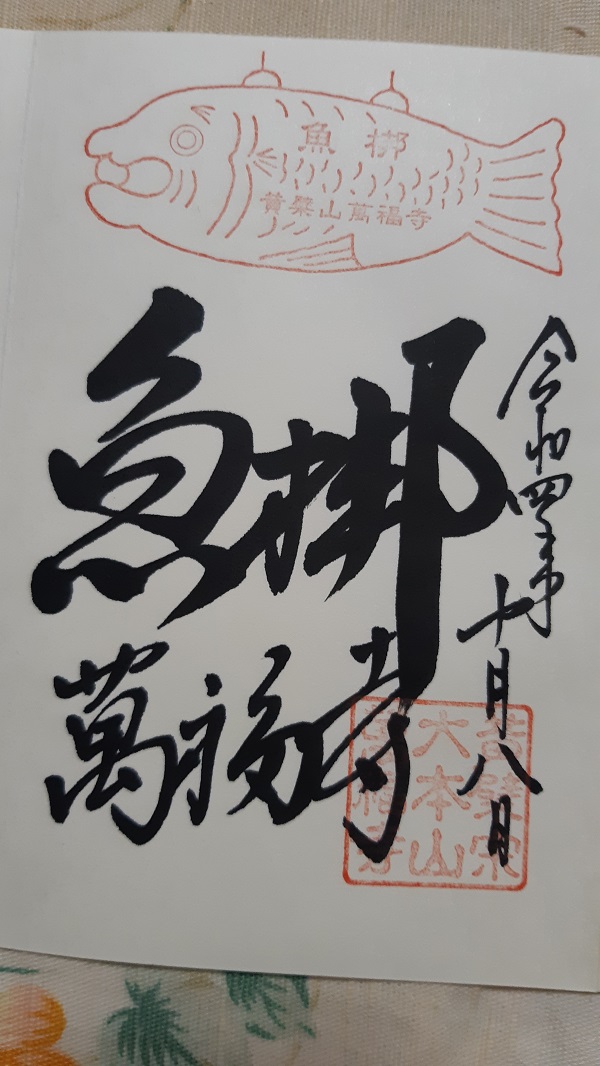 魚梆
黄檗山萬福寺
魚梆
萬福寺
令和四年十月八日
黄檗宗
大本山
萬福寺